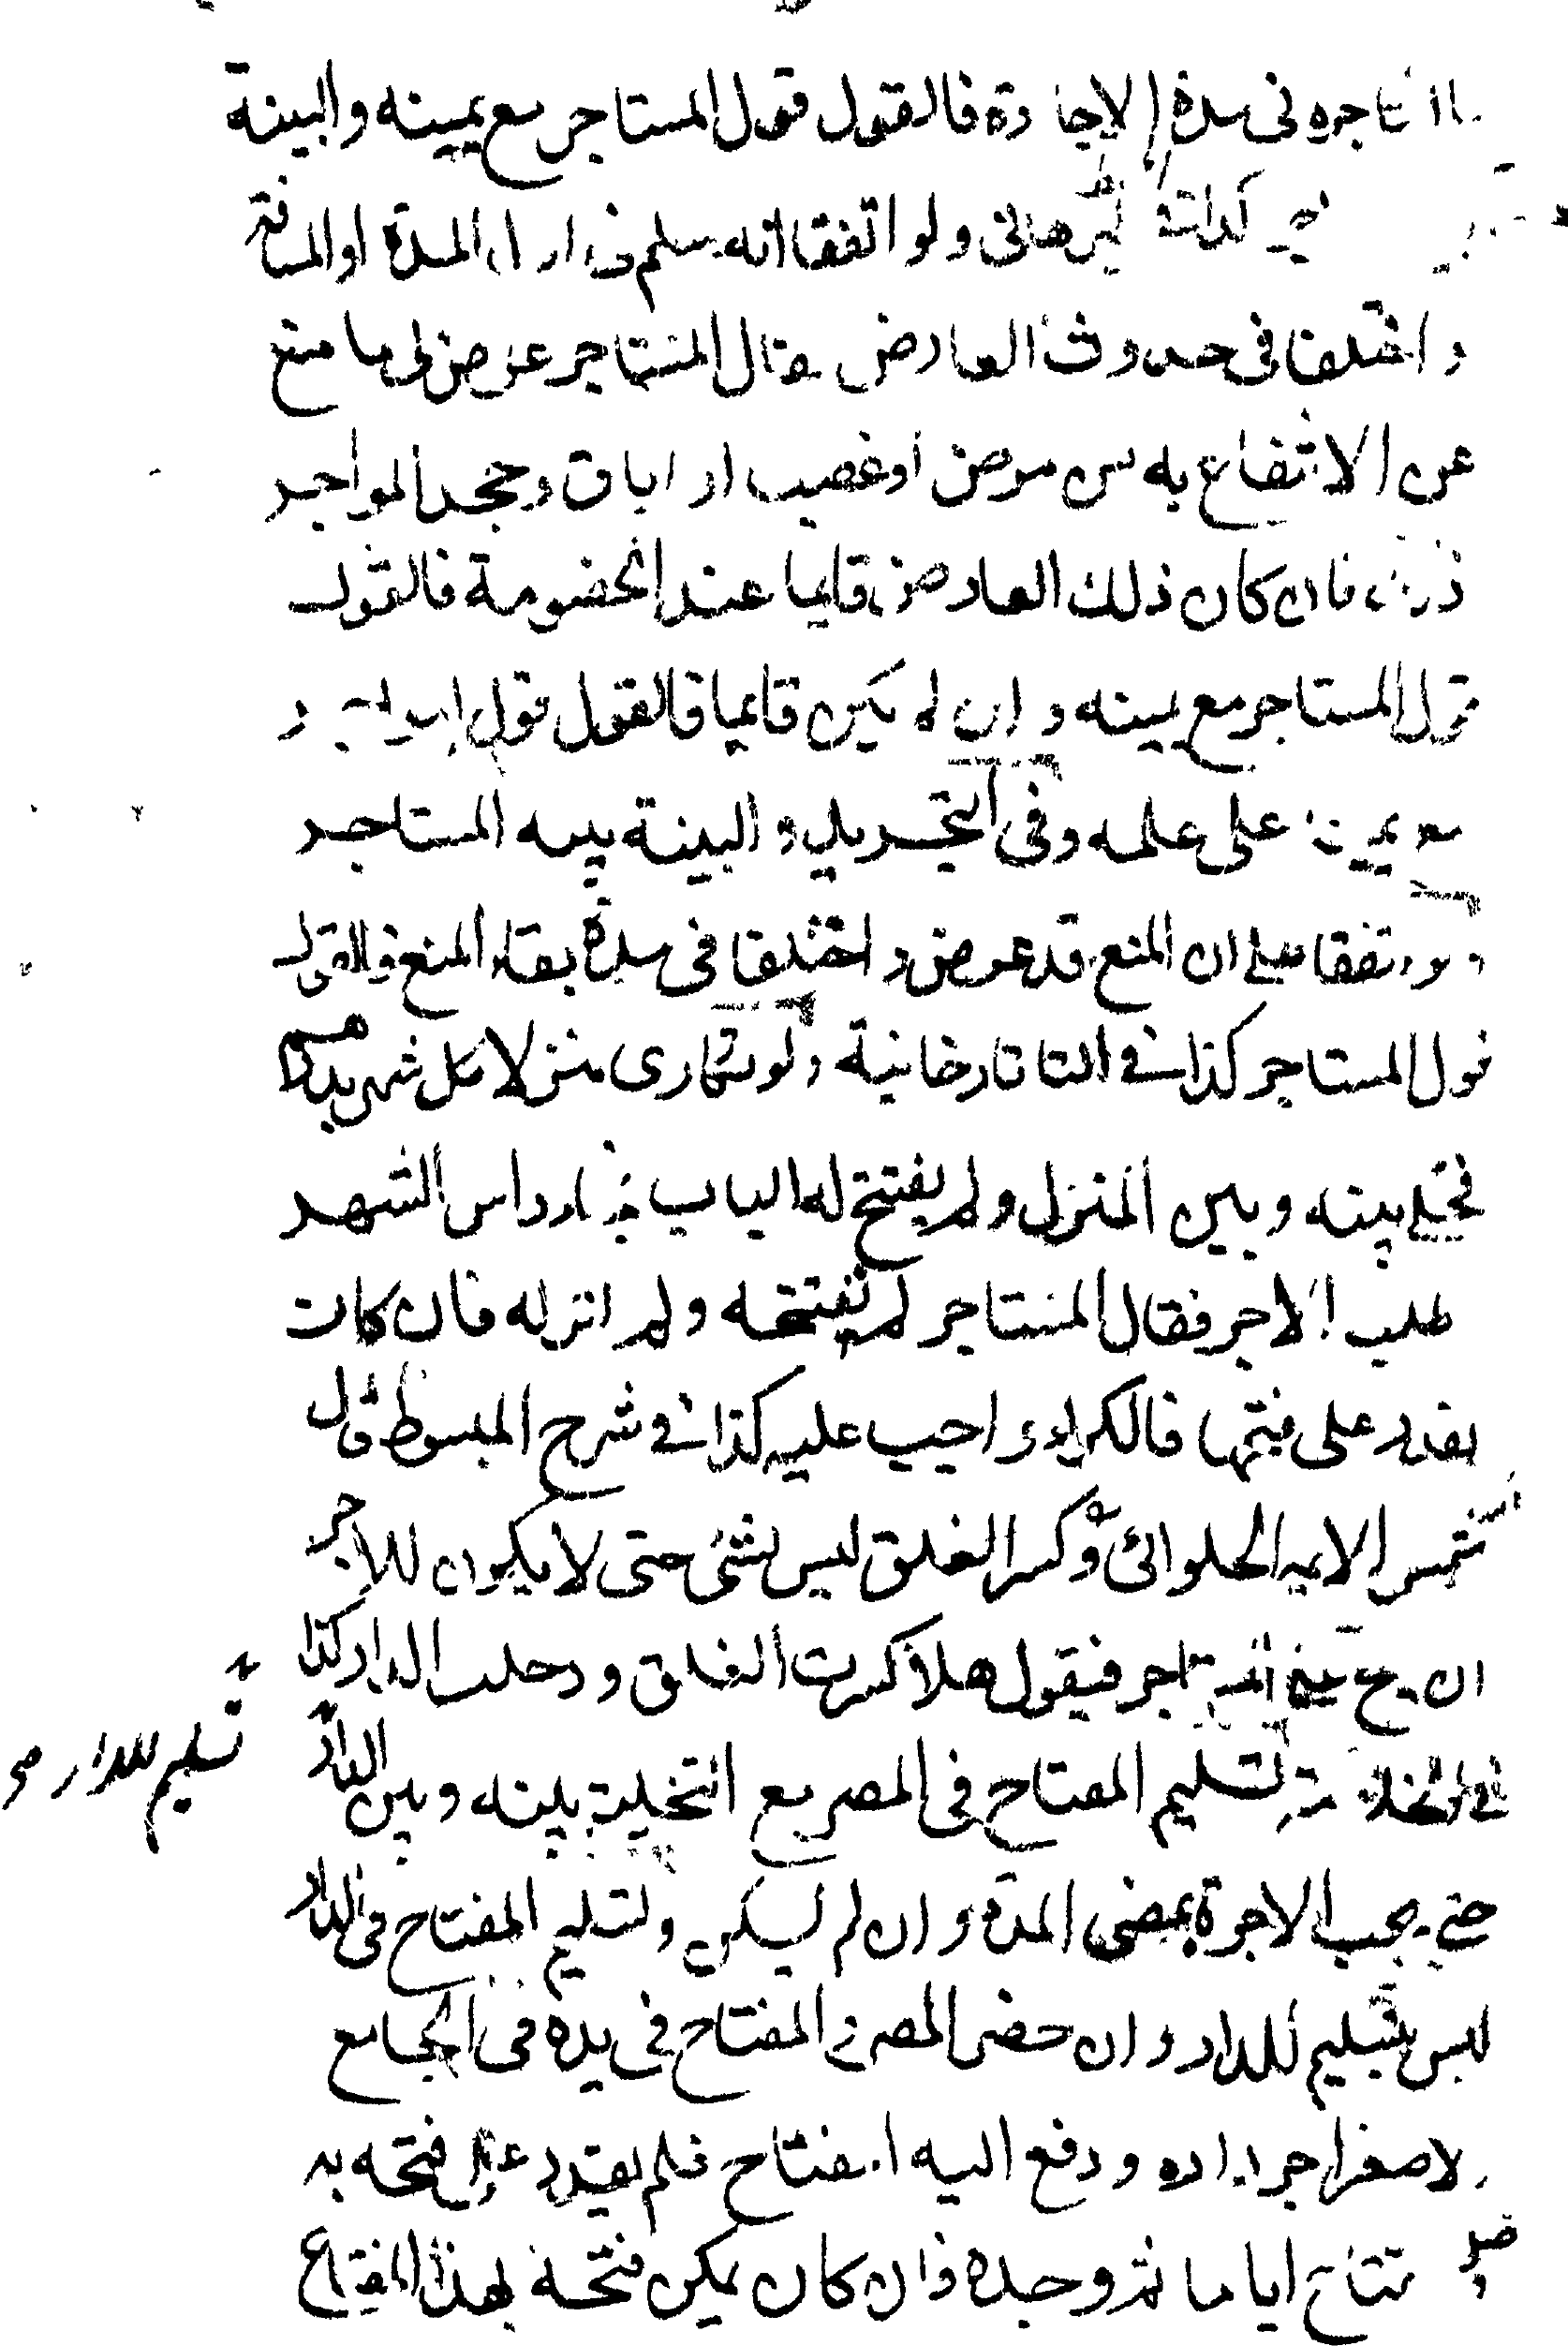 ما استاجره في مدة الاجارة فالقول قول المستاجر مع يمينه والبينة
كذا في ولو اتفقا انه سلم في اول المدة او المسافة
واختلفا في حدوث العارض فقال المستاجر عرض لي ما منع
عن الانتفاع به من مرض او غصب او اباق وجحد المواجر
ذلك فان كان ذلك العارض قايما عند الخصومة فالقول
قول المستاجر مع يمينه وان لم يكن قايما فالقول قول المواجر
مع يمينه على علمه وفي التجريد والبينة بينة المستاجر
ولو اتفقا على ان المنع قد عرض واختلفا في مدة بقاء المنع فالقول
قول المستاجر كذا في التاتارخانية ولو تكارى منزلا كل شهر بدرهم
فخلى بينه وبين المنزل ولم يفتح له الباب فجاء راس الشهر
طلب الاجر فقال المستاجر لم تفتحه ولم انزله فان كان
يقدر على فتحها فالكراء واجب عليه كذا في شرح المبسوط قال
شمس الايمة الحلوائي وكسر الغلق ليس بشئ حتى لا يكون للاجر
ان يحتج على المستاجر فيقول هلا كسرت الغلق ودخلت الدار كذا
في الخلاصة تسليم المفتاح في المصر مع التخلية بينه وبين الدار
تسليم للدار صح
حتى يجب الاجرة بمضي المدة وان لم يسكن وتسليم المفتاح في الدار
ليس بتسليم للدار وان حضر المصر والمفتاح في يده في الجامع
الاصغر اجر داره ودفع اليه المفتاح فلم يقدر على فتحه به
وضل المفتاح اياما ثم وجده فان كان يمكن فتحه بهذا المفتاح